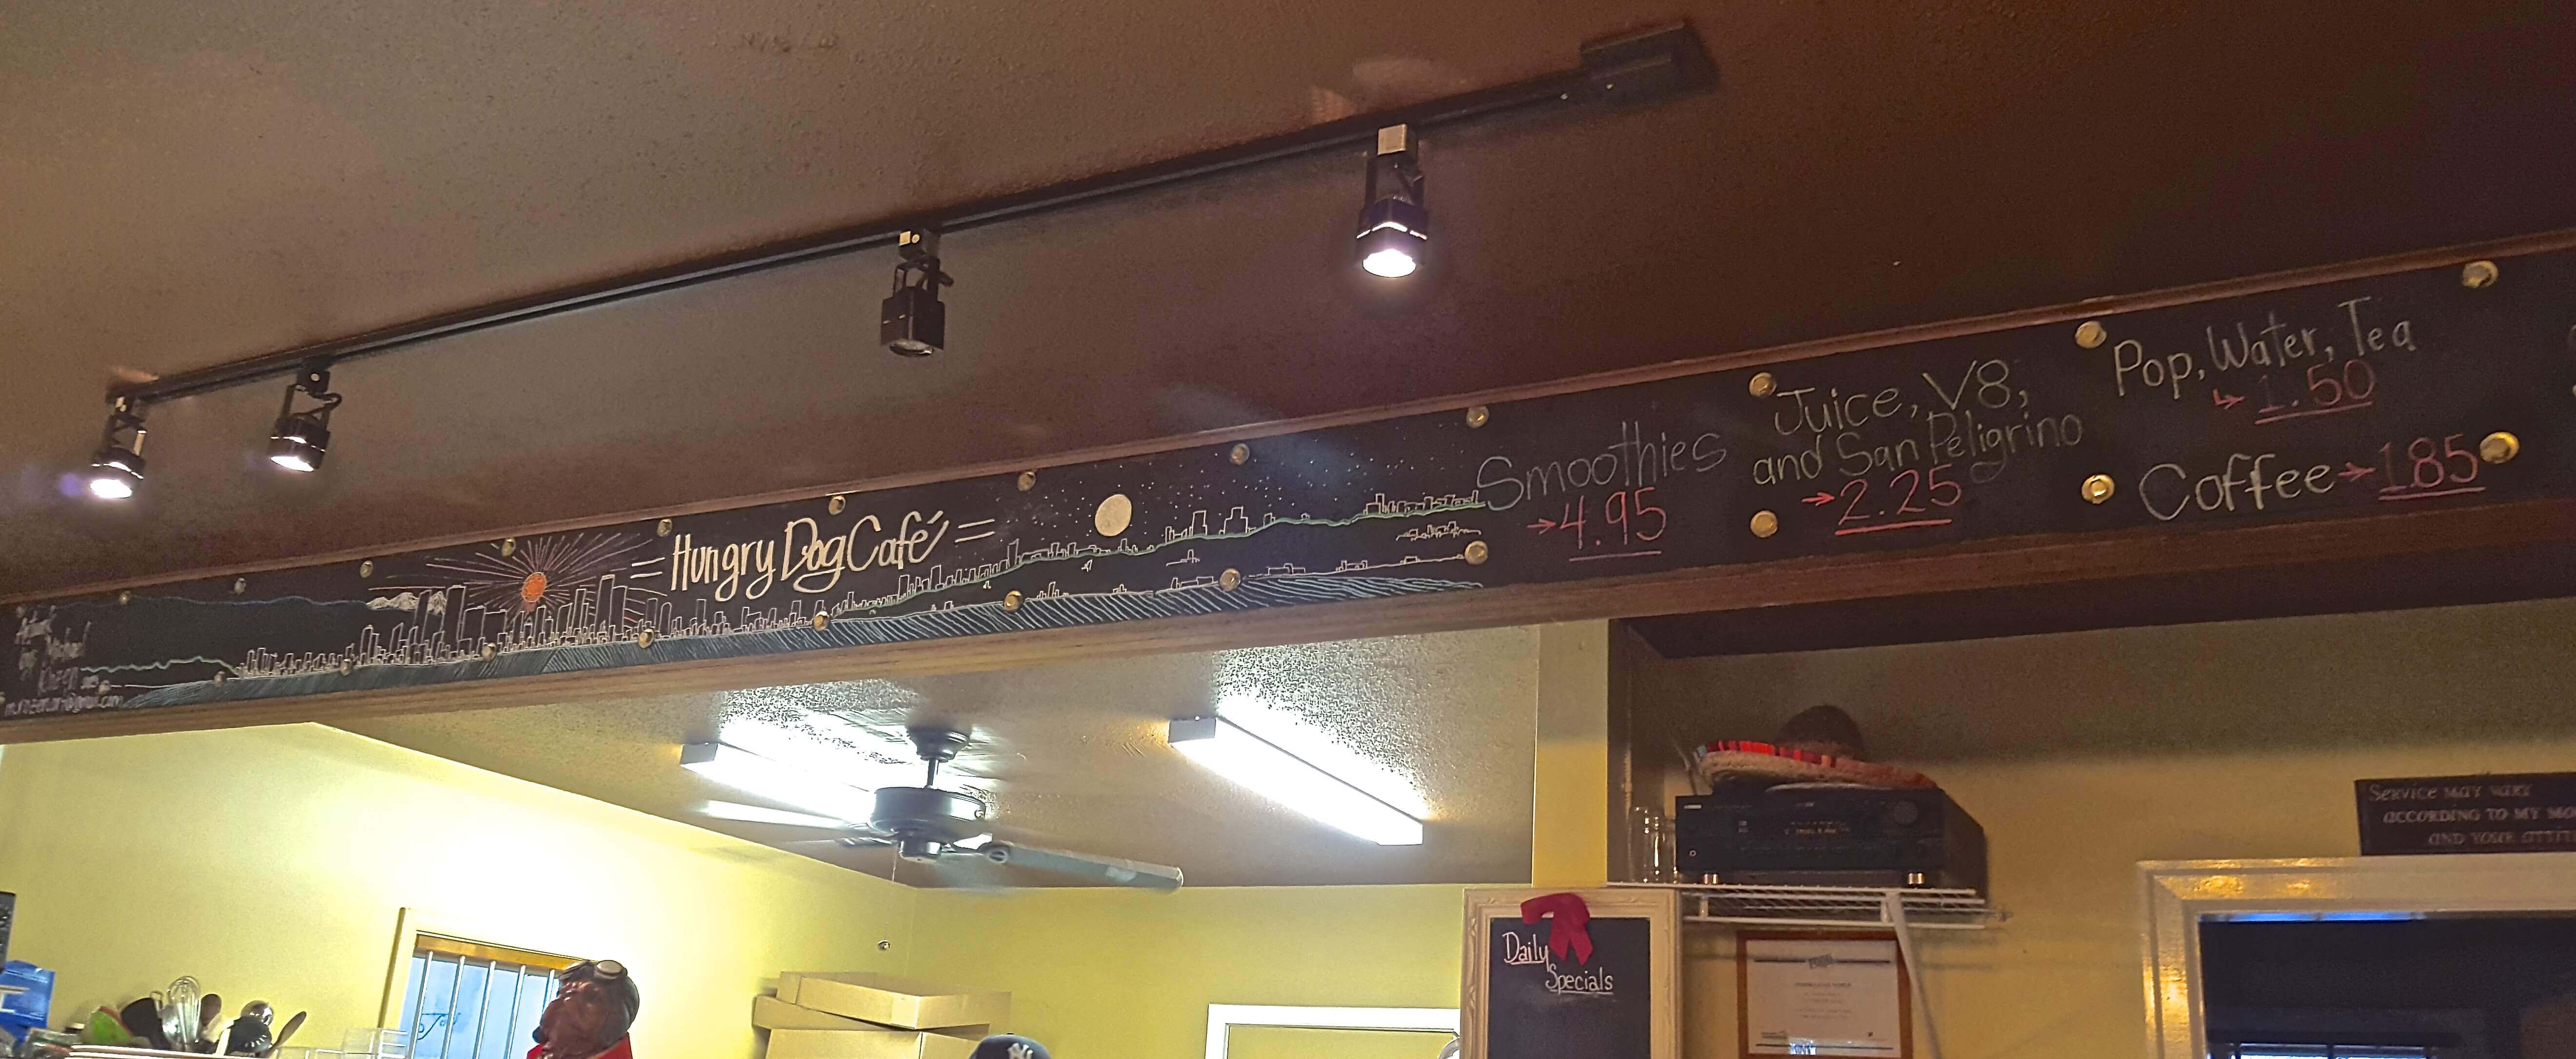 Hungry Dog Café
Smoothies
→4.95
Juice, V8,
and San Peligrino
→2.25
Pop, Water, Tea
↳1.50
Coffee→1.85
SERVICE MAY VARY
ACCORDING TO MY MO
AND YOUR ATTI
Daily
Specials
NY